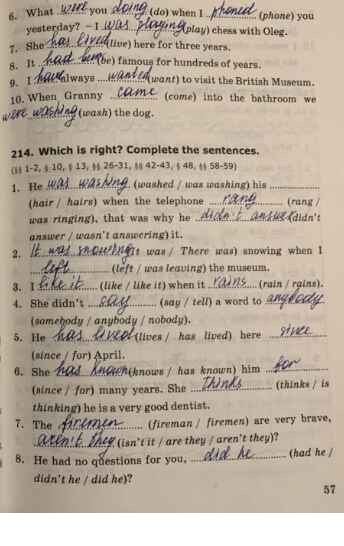 6. What were you doing (do) when I phoned (phone) you
yesterday? – I was playing (play) chess with Oleg.
7. She has lived (live) here for three years.
8. It had been (be) famous for hundreds of years.
9. I have always wanted (want) to visit the British Museum.
10. When Granny came (come) into the bathroom we
were washing (wash) the dog.
214. Which is right? Complete the sentences.
(§§ 1-2, § 10, § 13, §§ 26-31, §§ 42-43, § 48, §§ 58-59)
1. He was washing (washed / was washing) his ..............
(hair / hairs) when the telephone rang (rang /
was ringing), that was why he didn't answer (didn't
answer / wasn't answering) it.
2. It was snowing (It was / There was) snowing when I
left (left / was leaving) the museum.
3. I like it (like / like it) when it rains (rain / rains).
4. She didn't say (say / tell) a word to anybody
(somebody / anybody / nobody).
5. He has lived (lives / has lived) here since
(since / for) April.
6. She has known (knows / has known) him for
(since / for) many years. She thinks (thinks / is
thinking) he is a very good dentist.
7. The firemen (fireman / firemen) are very brave,
aren't they (isn't it / are they / aren't they)?
8. He had no questions for you, did he (had he /
didn't he / did he)?
57